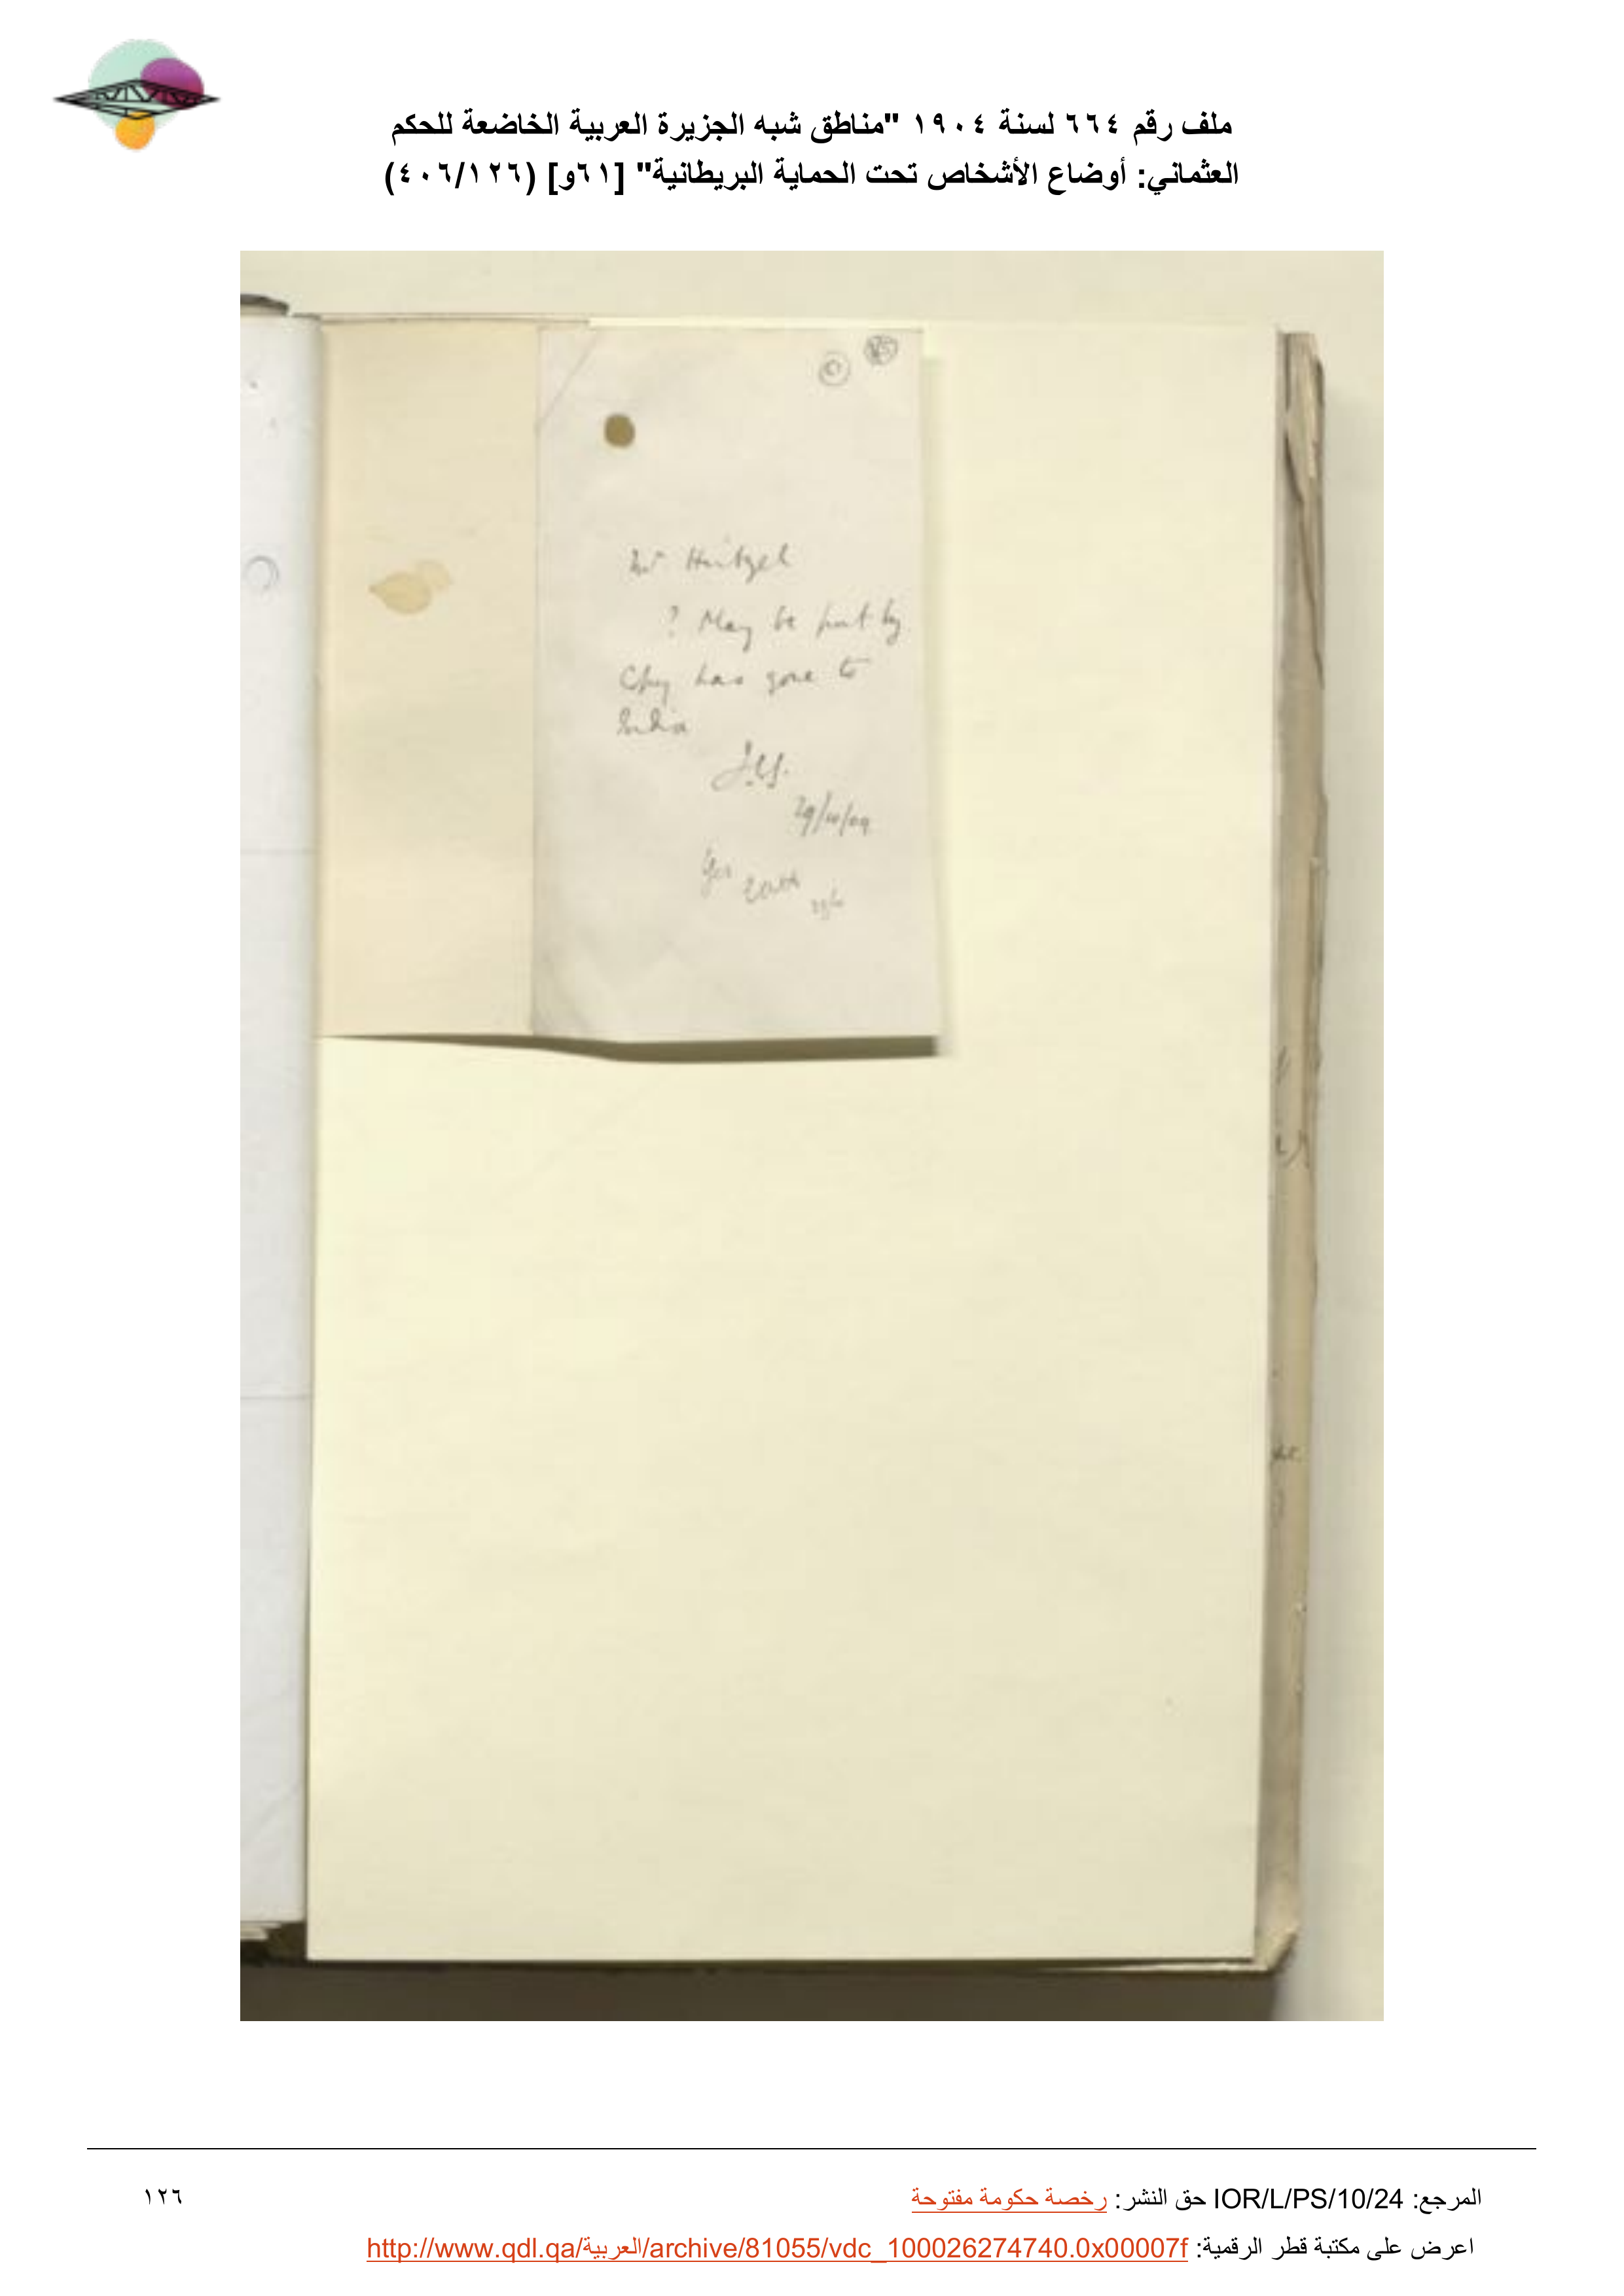 ملف رقم ٦٦٤ لسنة ١٩٠٤ "مناطق شبه الجزيرة العربية الخاضعة للحكم
العثماني: أوضاع الأشخاص تحت الحماية البريطانية" [٦١و] (٤٠٦/١٢٦)
Mr Hirtzel
? May be put by
Copy has gone to
India
29/10/09
Yes
المرجع: IOR/L/PS/10/24 حق النشر: رخصة حكومة مفتوحة
١٢٦
اعرض على مكتبة قطر الرقمية: http://www.qdl.qa/العربية/archive/81055/vdc_100026274740.0x00007f